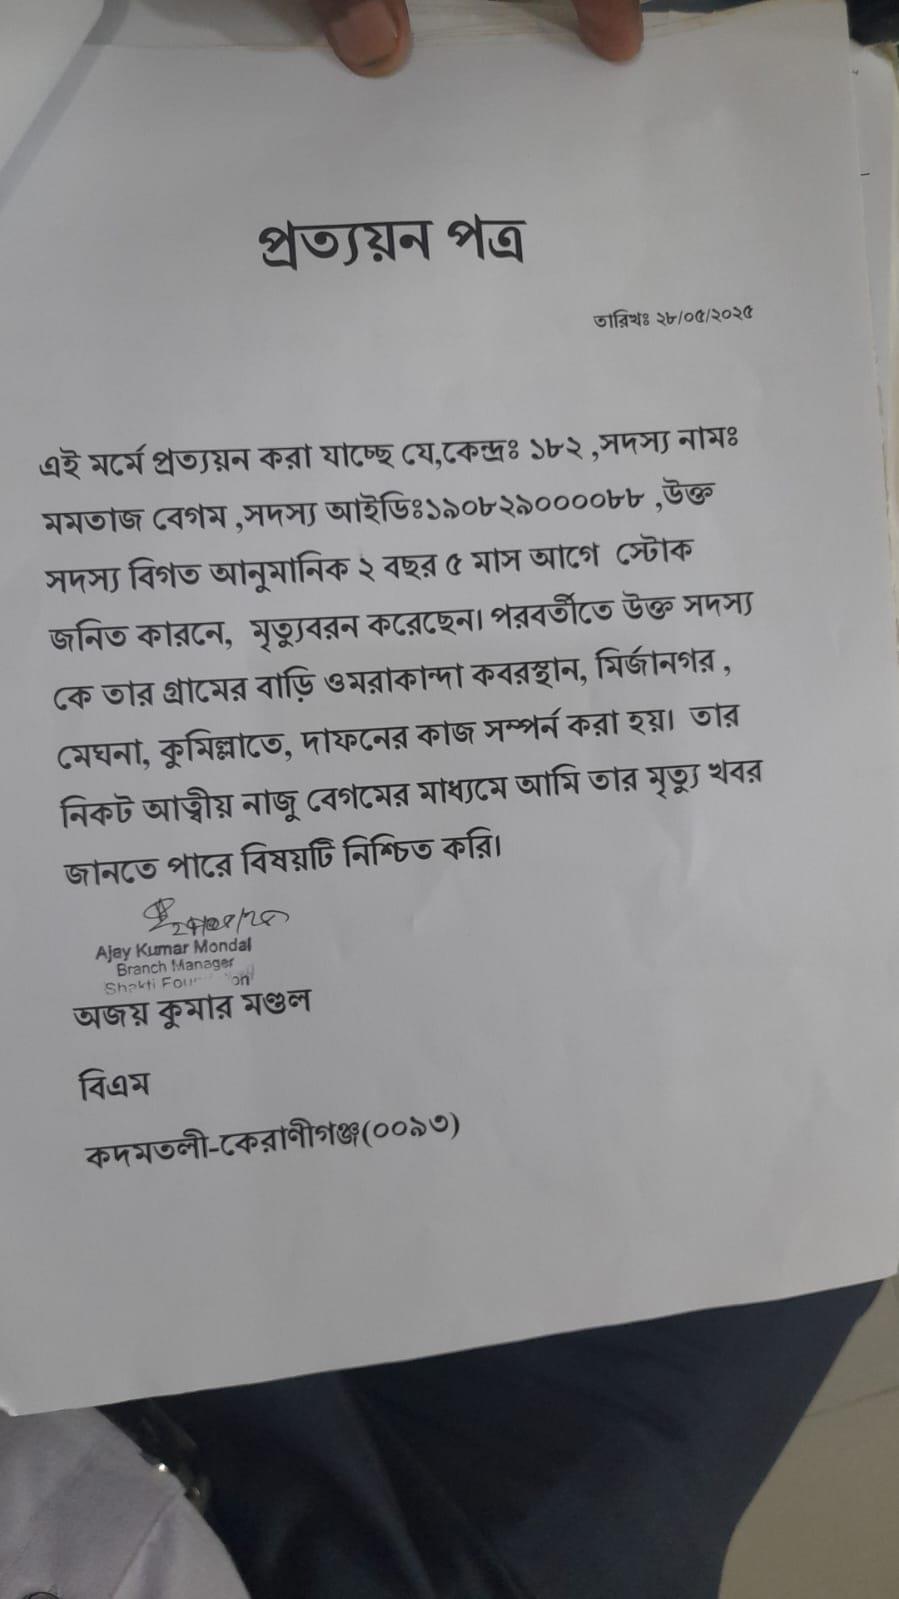 প্রত্যয়ন পত্র
তারিখঃ ২৮/০৫/২০২৫
এই মর্মে প্রত্যয়ন করা যাচ্ছে যে,কেন্দ্রঃ ১৮২ ,সদস্য নামঃ
মমতাজ বেগম ,সদস্য আইডিঃ১৯০৮২৯০০০০৮৮ ,উক্ত
সদস্য বিগত আনুমানিক ২ বছর ৫ মাস আগে স্টোক
জনিত কারনে, মৃত্যুবরন করেছেন। পরবর্তীতে উক্ত সদস্য
কে তার গ্রামের বাড়ি ওমরাকান্দা কবরস্থান, মির্জানগর ,
মেঘনা, কুমিল্লাতে, দাফনের কাজ সম্পর্ন করা হয়। তার
নিকট আত্বীয় নাজু বেগমের মাধ্যমে আমি তার মৃত্যু খবর
জানতে পারে বিষয়টি নিশ্চিত করি।
Ajay Kumar Mondal
Branch Manager
Shakti
অজয় কুমার মণ্ডল
বিএম
কদমতলী-কেরাণীগঞ্জ(০০৯৩)